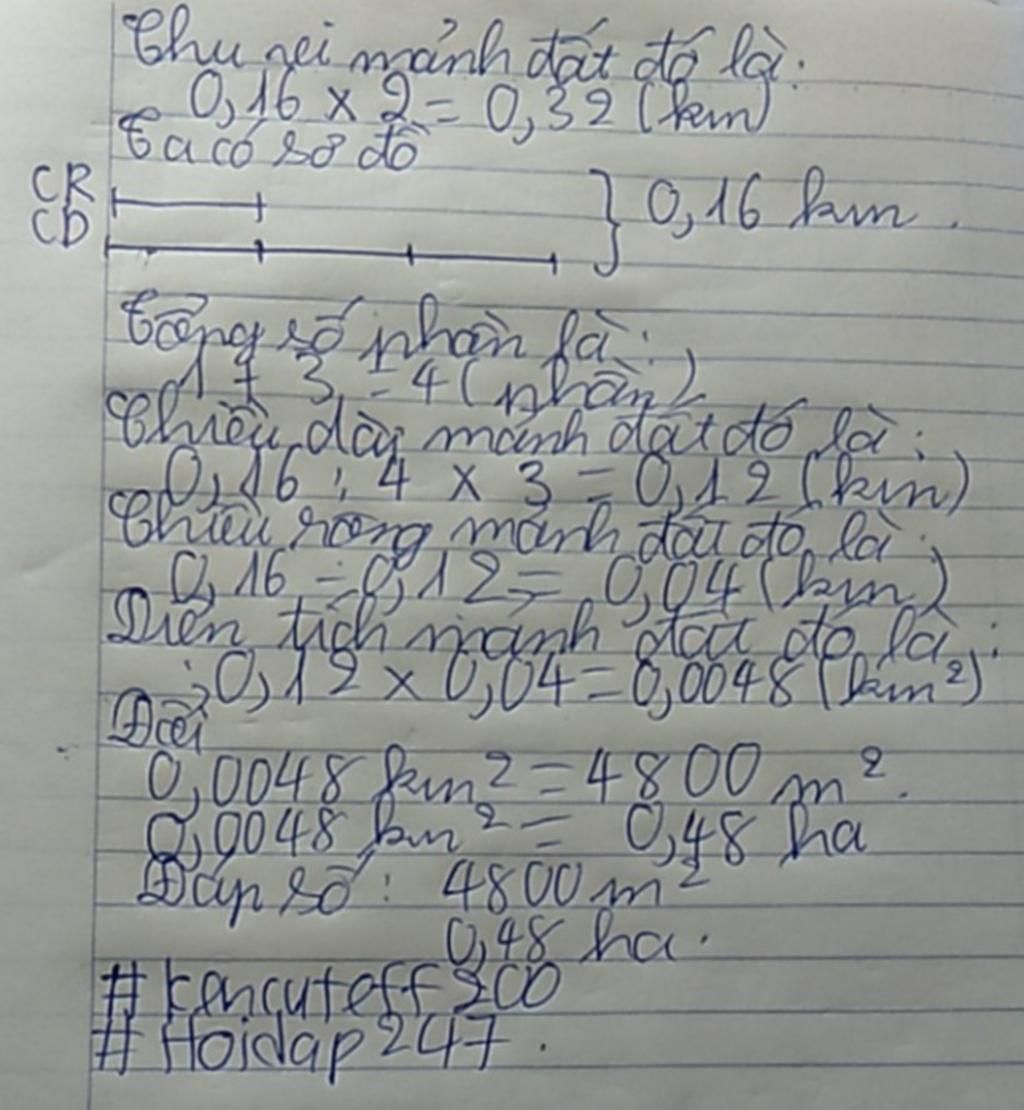 Chu vi mảnh đất đó là:
0,16 x 2 = 0,32 (km)
Ta có sơ đồ
CR
CD
0,16 km.
Tổng số phần là:
1 + 3 = 4 (phần)
Chiều dài mảnh đất đó là:
0,16 : 4 x 3 = 0,12 (km)
Chiều rộng mảnh đất đó là:
0,16 - 0,12 = 0,04 (km)
Diện tích mảnh đất đó là:
0,12 x 0,04 = 0,0048 (km²)
Đổi
0,0048 km² = 4800 m².
0,0048 km² = 0,48 ha
Đáp số: 4800 m²
0,48 ha.
# kencuteff200
# Hoidap247.